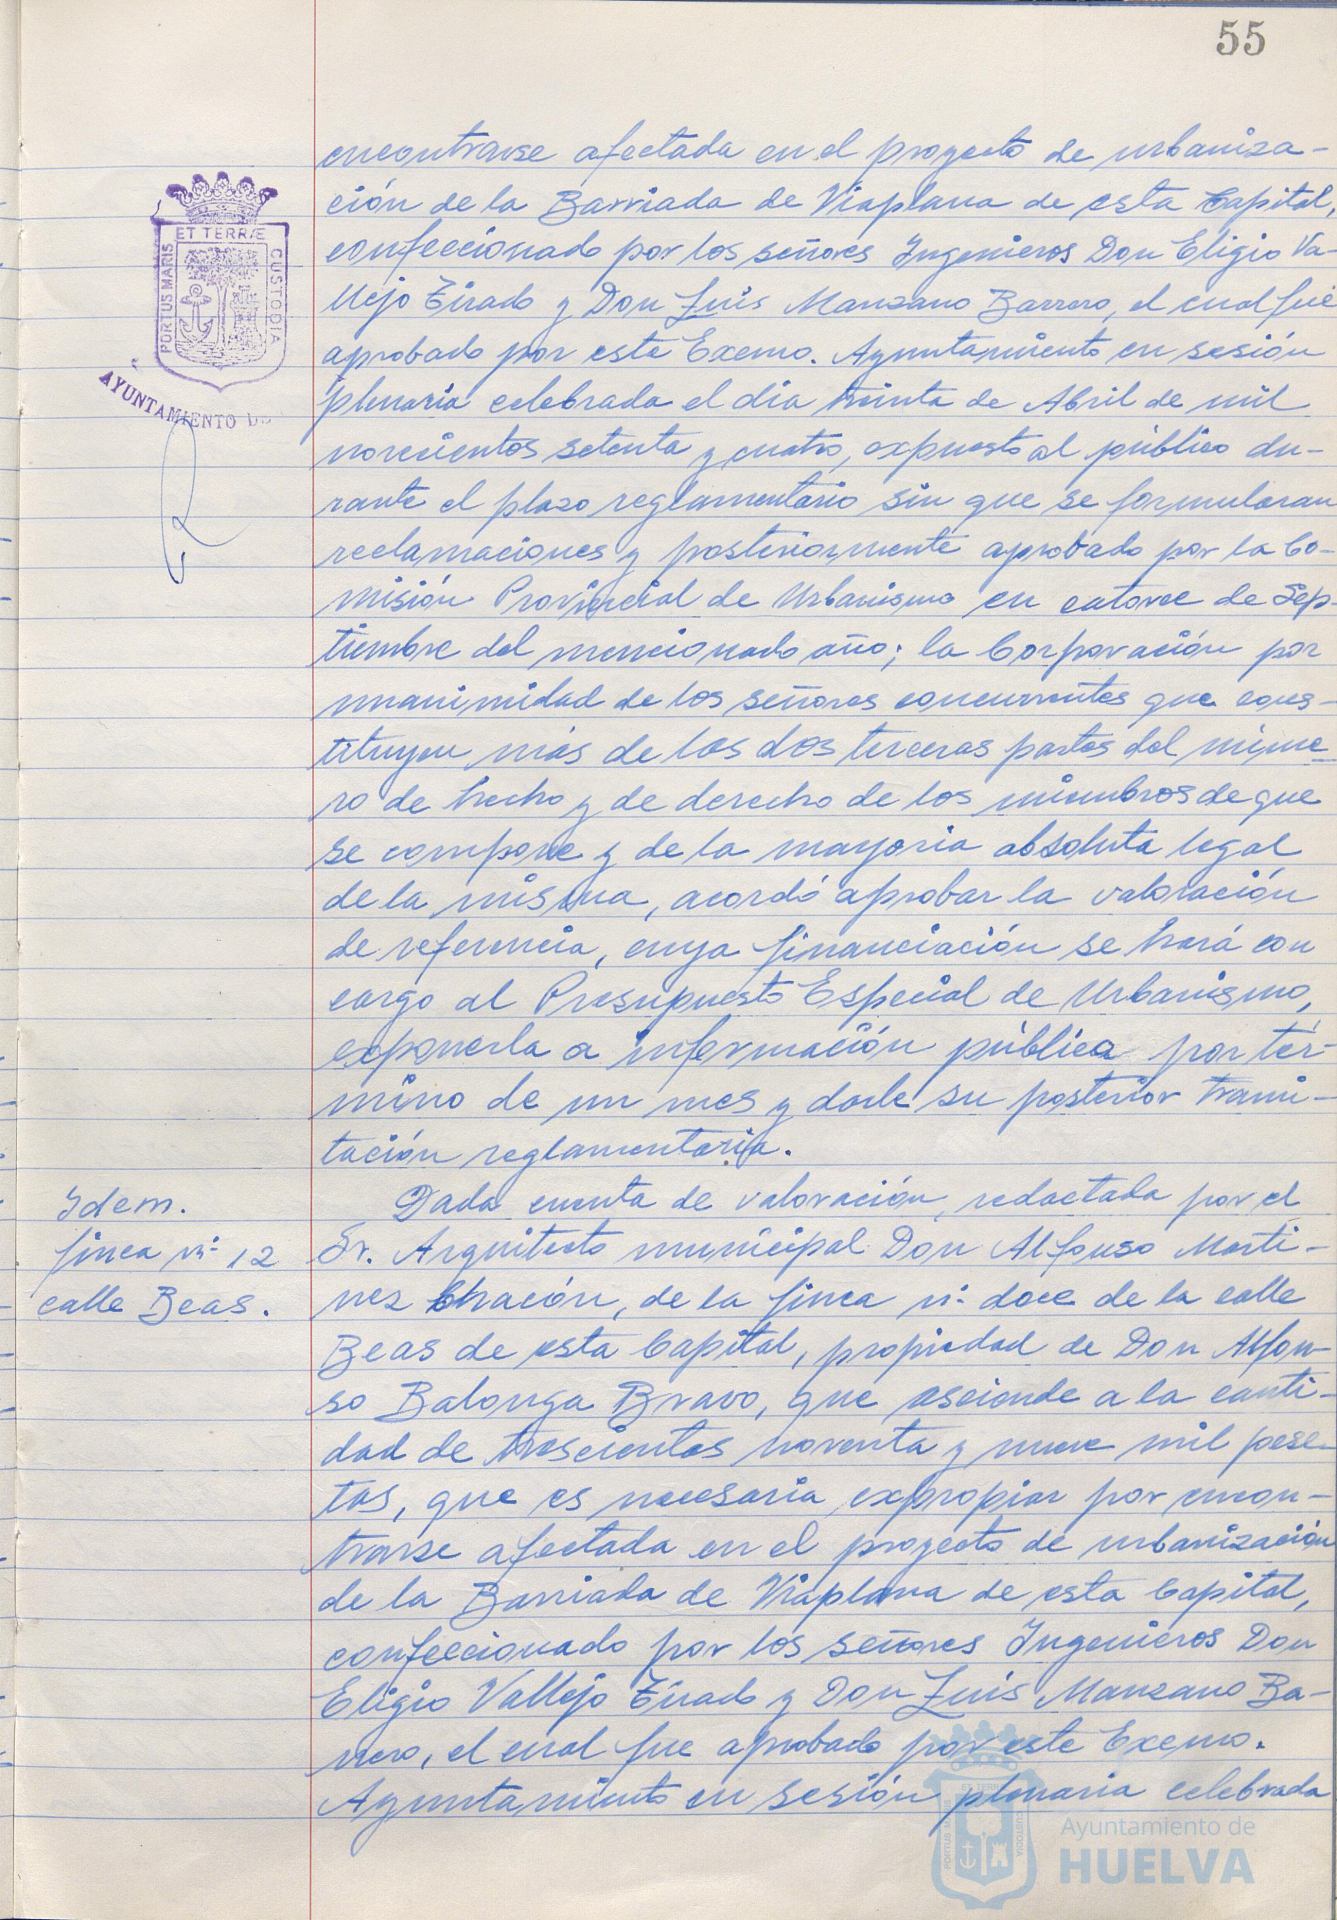 55
encontrarse afectada en el proyecto de urbaniza-
ción de la Barriada de Viaplana de esta Capital,
confeccionado por los señores Ingenieros Don Eligio Va-
llejo Tirado y Don Luis Manzano Barrero, el cual fué
aprobado por este Excmo. Ayuntamiento en sesión
plenaria celebrada el día treinta de Abril de mil
novecientos setenta y cuatro, expuesto al público du-
rante el plazo reglamentario sin que se formularan
reclamaciones y posteriormente aprobado por la Co-
misión Provincial de Urbanismo en catorce de Sep-
tiembre del mencionado año; la Corporación por
unanimidad de los señores concurrentes que cons-
tituyen más de las dos terceras partes del núme-
ro de hecho y de derecho de los miembros de que
se compone y de la mayoría absoluta legal
de la misma, acordó aprobar la valoración
de referencia, cuya financiación se hará con
cargo al Presupuesto Especial de Urbanismo,
exponerla a información pública por tér-
mino de un mes y darle su posterior trami-
tación reglamentaria.
Idem.
finca nº 12
calle Beas.
Dada cuenta de valoración, redactada por el
Sr. Arquitecto municipal Don Alfonso Martí-
nez Chacón, de la finca nº doce de la calle
Beas de esta Capital, propiedad de Don Alfon-
so Balonga Bravo, que asciende a la canti-
dad de trescientas noventa y nueve mil pese-
tas, que es necesaria expropiar por encon-
trarse afectada en el proyecto de urbanización
de la Barriada de Viaplana de esta Capital,
confeccionado por los señores Ingenieros Don
Eligio Vallejo Tirado y Don Luis Manzano Ba-
rrero, el cual fue aprobado por este Excmo.
Ayuntamiento en sesión plenaria celebrada
PORTUS MARIS
ET TERRÆ
CUSTODIA
AYUNTAMIENTO DE
Ayuntamiento de
HUELVA